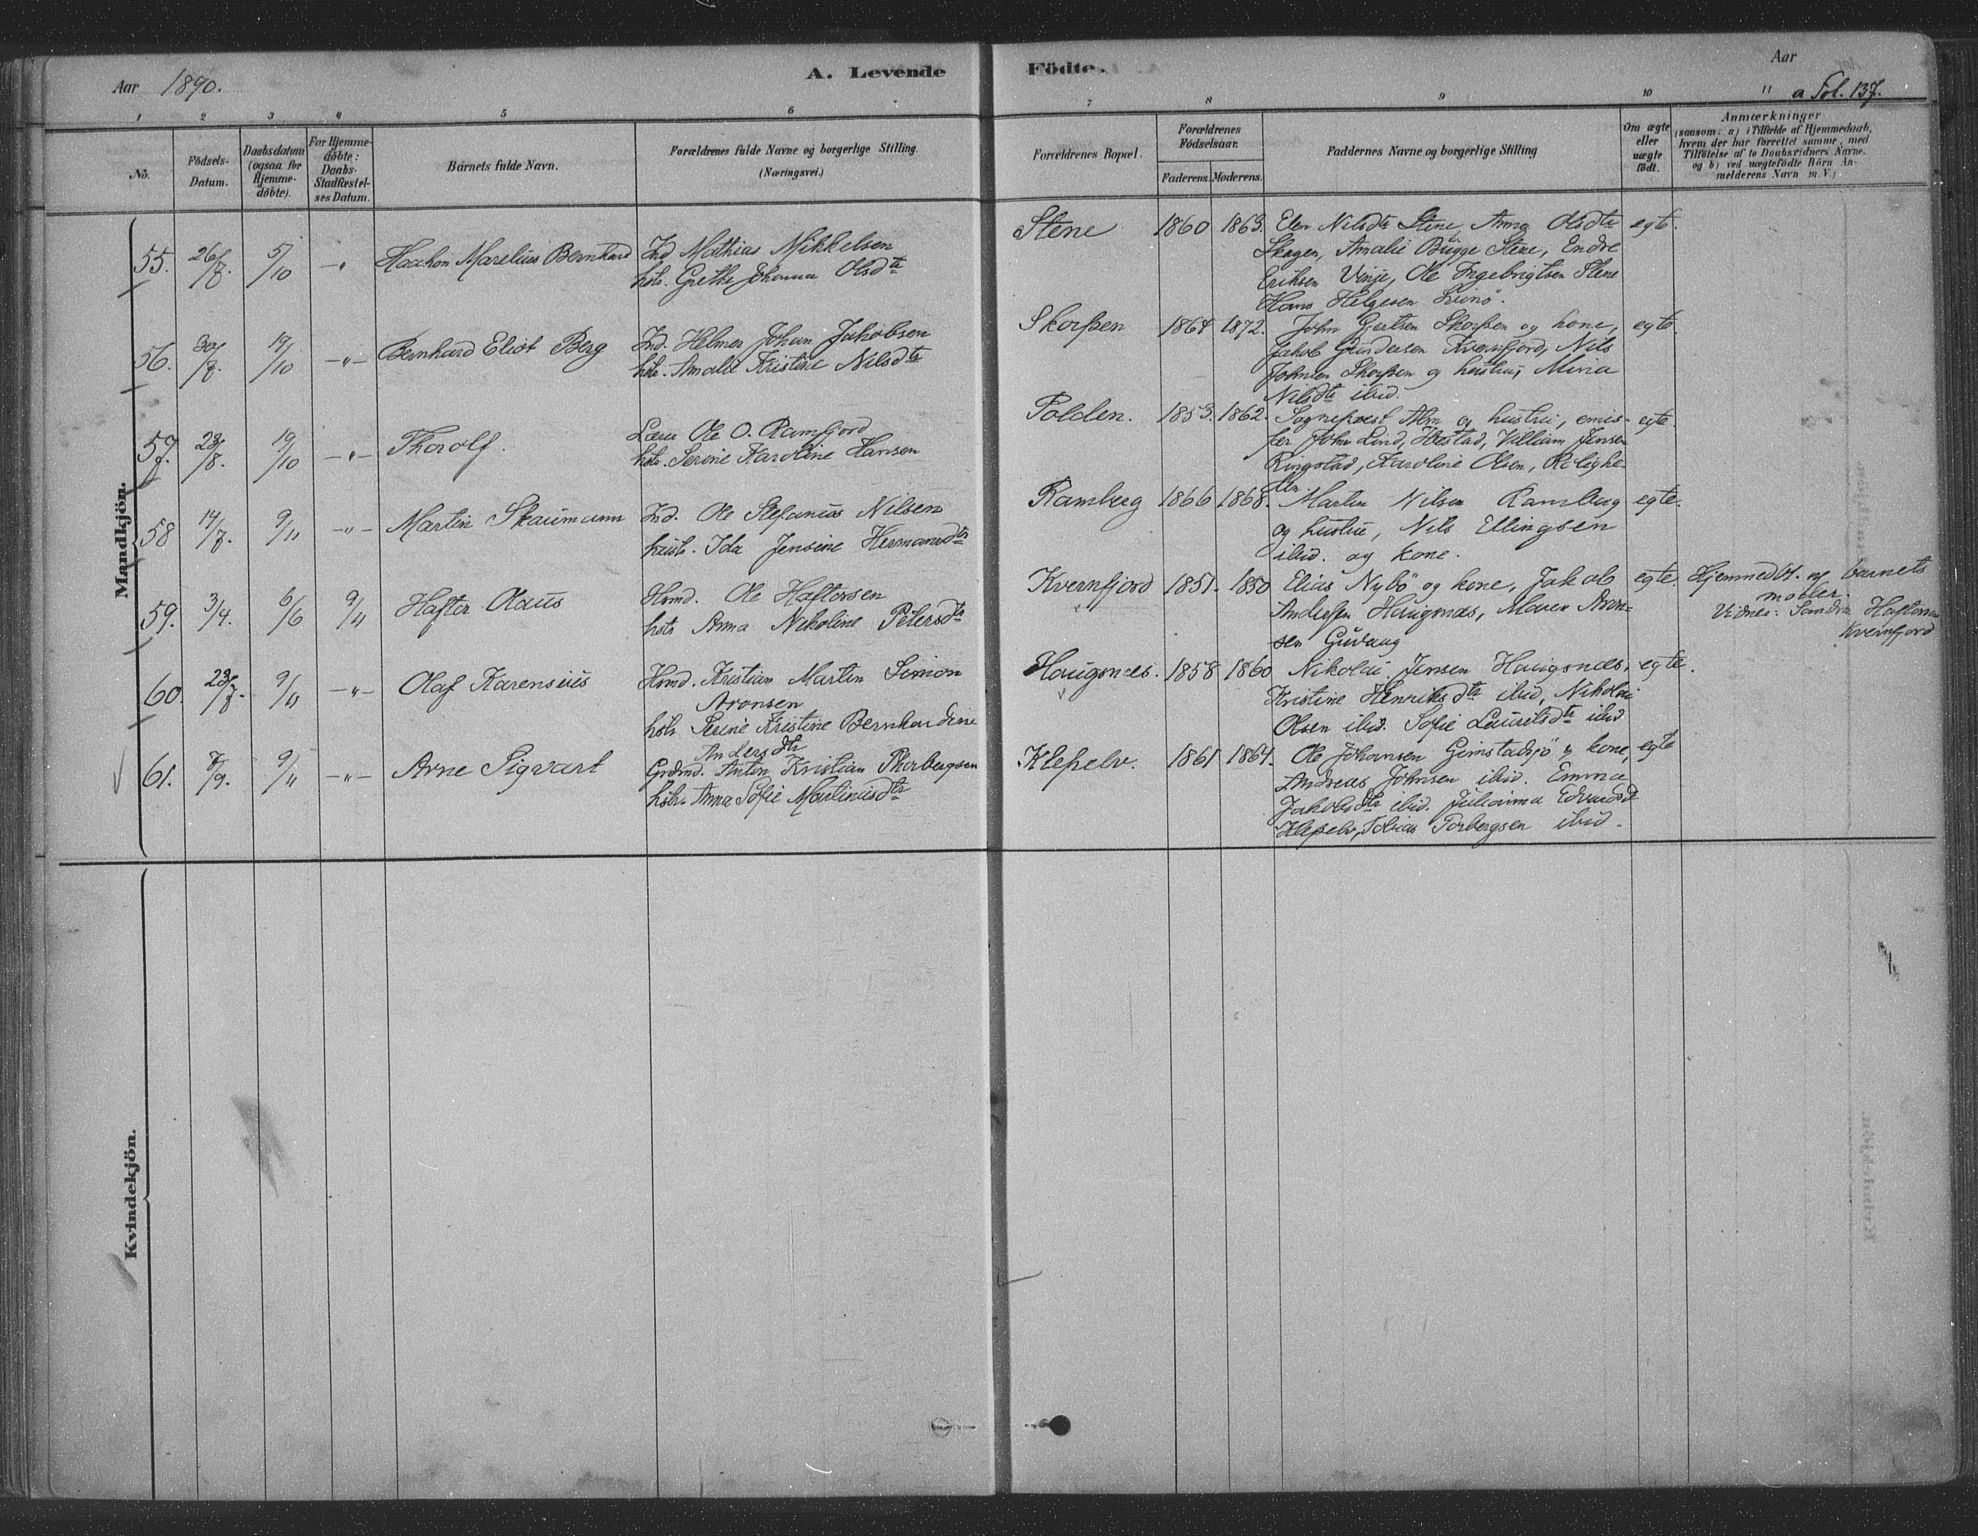 Aar 1890.
A. Levende
Födte.
Aar
a Fol. 137.
1 2 3 4 5 6 7 8 9 10 11
No.
Födsels-Datum.
Daabsdatum (ogsaa for Hjemme-döbte).
For Hjemme-döbte: Daabs-Stadfæstel-ses Datum.
Barnets fulde Navn.
Forældrenes fulde Navne og borgerlige Stilling. (Næringsvei.)
Forældrenes Bopæl.
Forældrenes Födselsaar.
Faderens. Moderens.
Faddernes Navne og borgerlige Stilling
Om ægte eller uægte födt.
Anmærkninger
(saasom: a) i Tilfælde af Hjemmedaab, hvem der har forrettet samme, med Tilföielse af to Daabsvidners Navne. og b) ved uægtefödte Börn An-melderens Navn m. V.)
Mandkjön.
55. 26/8. 5/10 -"- Haakon Marelius Bernhard
Ind Mathias Mikkelsen
hstr. Grethe Johanna Olsdtr
Stene 1860 1863. Elen Nilsdtr Stene, Anna Olsdtr egte.
Skagen, Amalie Bugge Stene, Endre
Eriksen Vinje, Ole Ingebrigtsen Stene
Hans Helgesen
56. 30/8. 19/10 -"- Bernhard Eliot Berg
Ind. Helmer Johan Jakobsen
hstr. Amalie Kristine Nilsdtr
Skorpen 1864 1872. John Gertsen Skorpen og kone, egte.
Jakob Gundersen Kvernfjord, Nils
Johnsen Skorpen og hustru, Mina
Nilsdtr ibid.
57. 23/8. 19/10 -"- Thorolf.
Lærer Ole O. Ramfjord
hstr. Serine Karoline Hansen
Polden. 1853. 1862. Sogneprest Alm og hustru, emis- egte.
sær John Lind, Hæstad, Villiam Jensen
Ringstad, Karoline Olsen, Rolighe-
den
58 14/7. 9/11 -"- Martin Skaumann
Ind. Ole Stefanus Nilsen
hust. Ida Jensine Hermansdtr
Ramberg 1866 1868. Martin Nilsen Ramberg egte.
og hustru, Nils Ellingsen
ibid. og kone.
59. 3/4. 6/6 9/4 Hafter Olaus
Hmd. Ole Haftorsen
hstr Anna Nikoline Petersdtr
Kvernfjord 1851. 1850 Elias Nybö og kone, Jakob egte.
Andersen Haugsnæs, Maren Aron-
sen Guvaag
Hjemmedbt. af barnets
moder.
Vidner: Sandra Haftorsen
Kvernfjord
60. 23/8. 9/11 -"- Olaf Karensius
Hmd. Kristian Martin Simon
Aronsen
hstr Serine Kristine Bernhardine
Andersdtr
Haugsnes. 1858 1860 Nikolai Jensen Haugsnæs, egte.
Kristine Henriksdtr ibid, Nikolai
Olsen ibid. Sofie Lauritsdtr ibid
61. 8/9. 9/11 -"- Arne Sigvart
Grdmd. Anton Kristian Thorbergsen
hstr. Anna Sofie Martinusdtr
Klepelv. 1861 1864. Ole Johansen Gimstadsjö og kone, egte
Andreas Johnsen ibid. Emma
Jakobsdtr ibid. Julianna Edvardsd
Klepelv, Tobias Torbergsen ibid.
Kvindekjön.